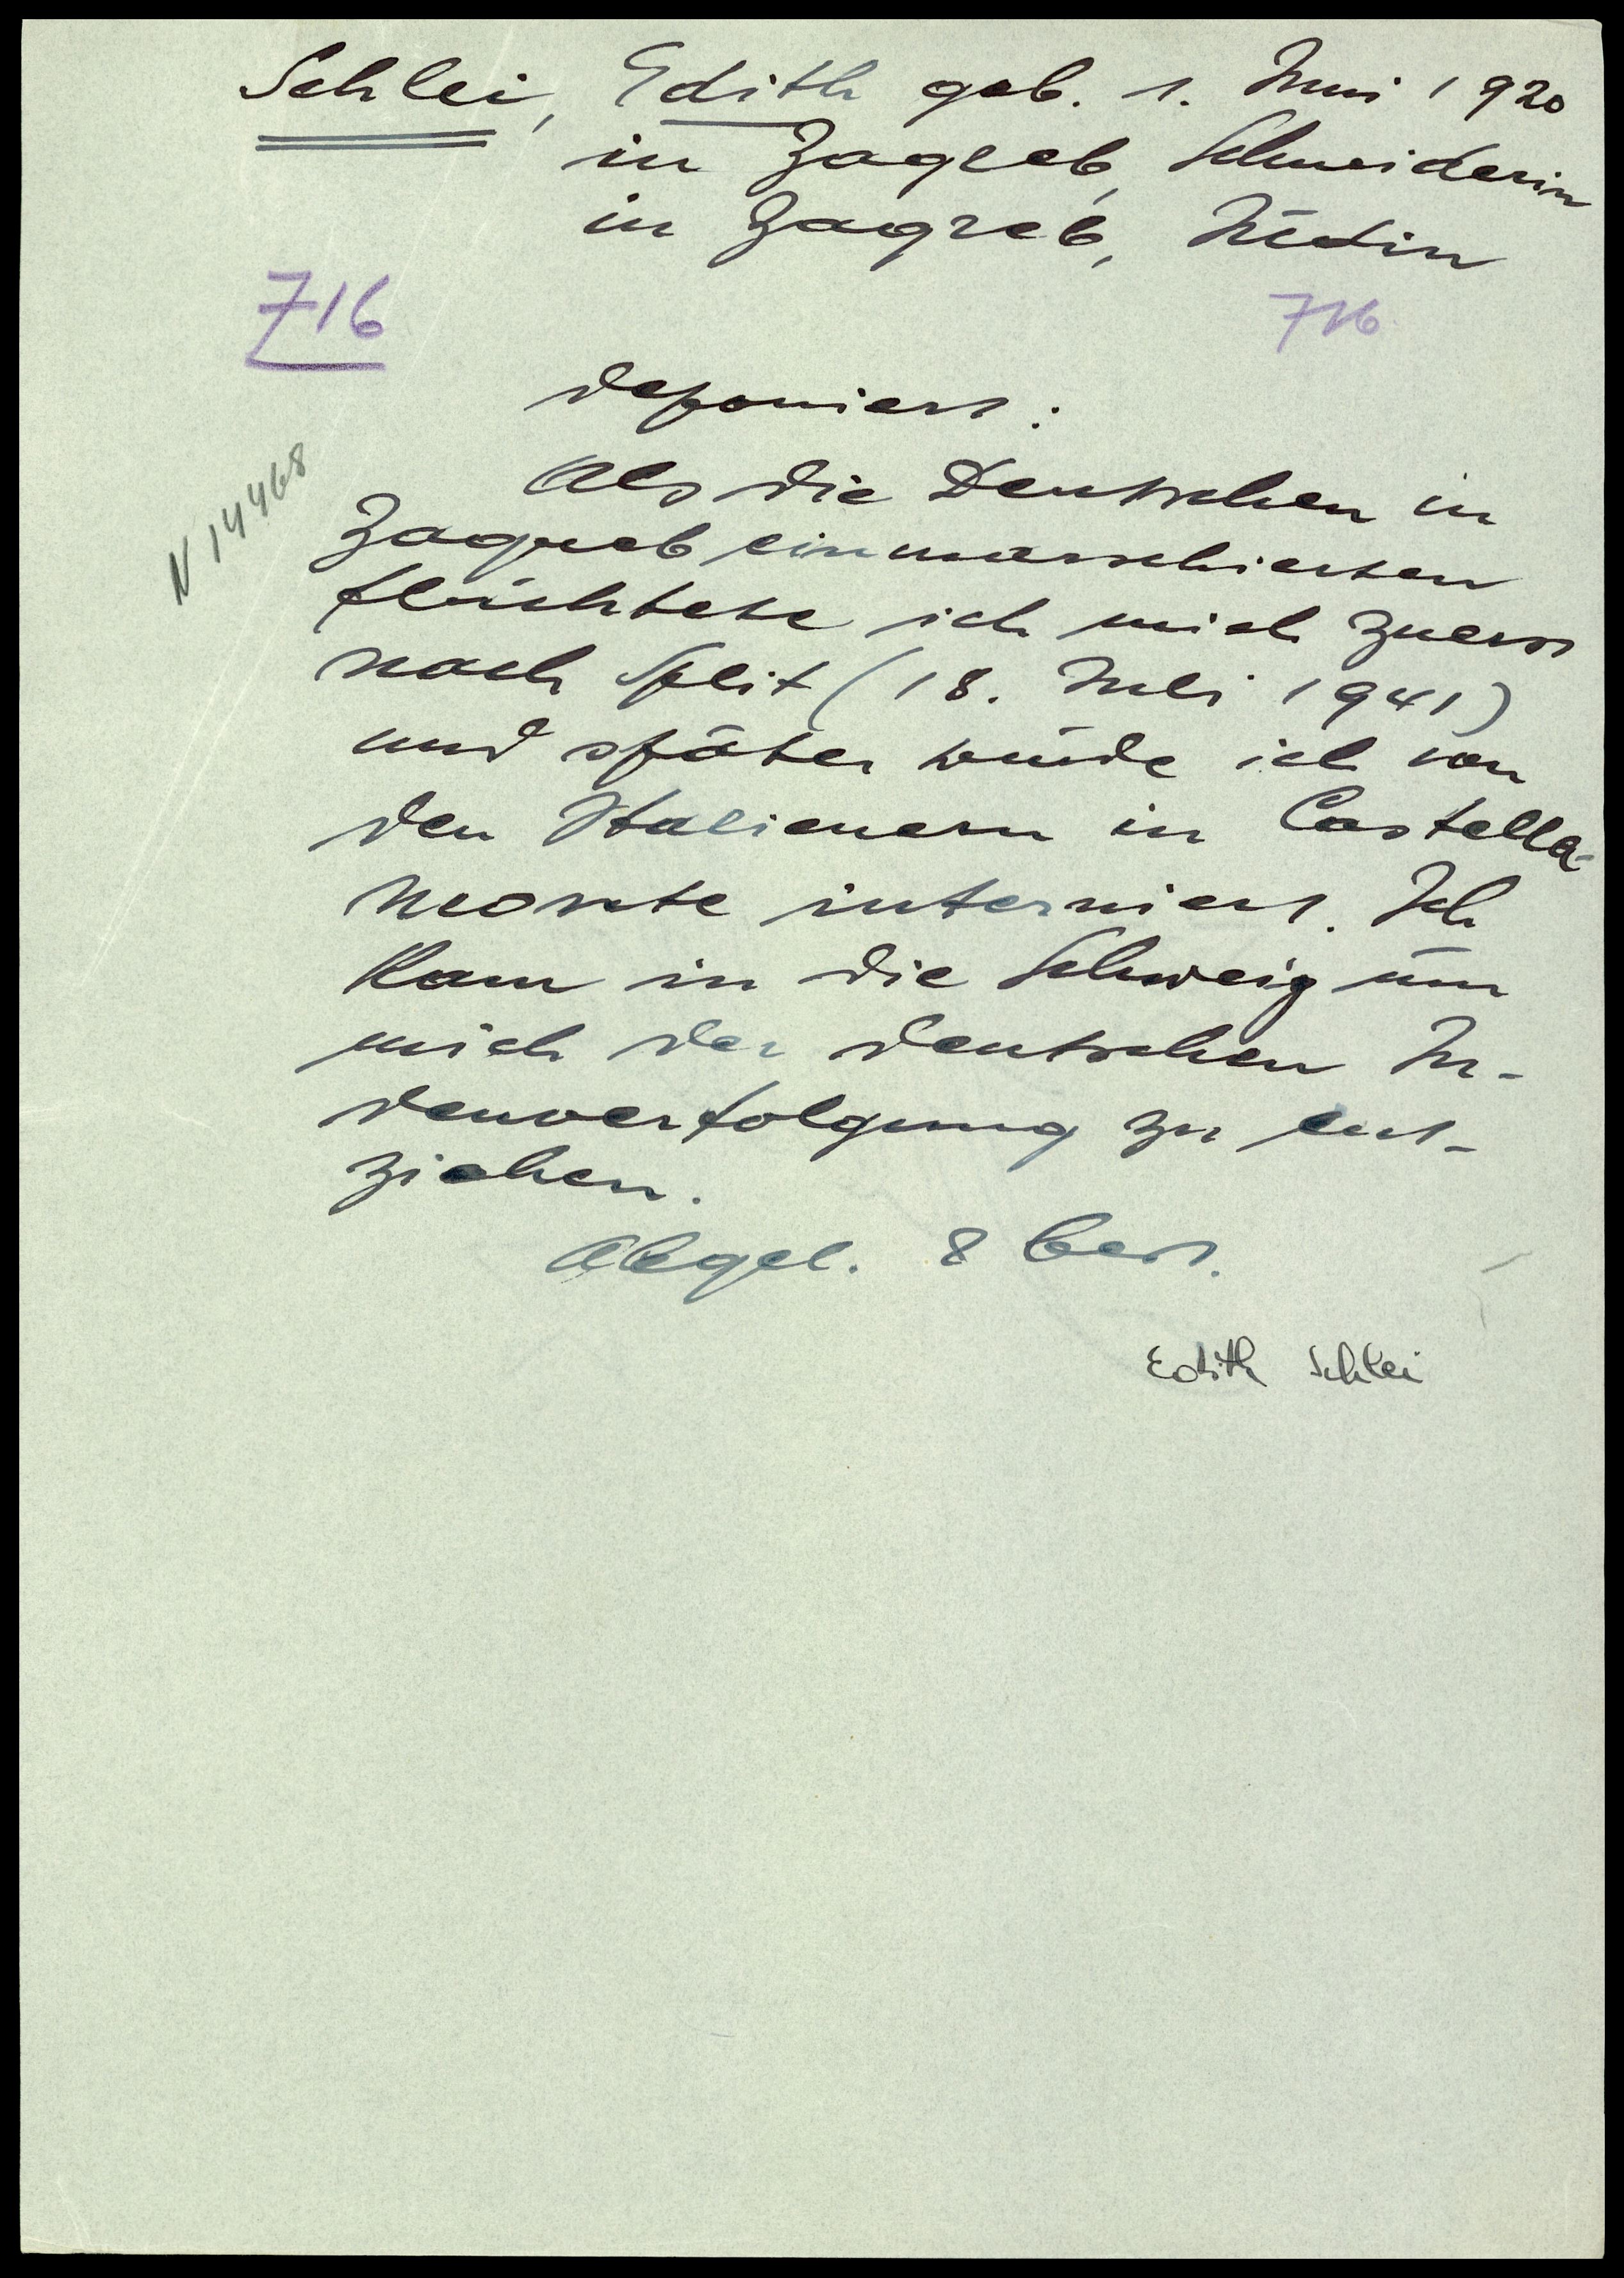 Schlei, Edith geb. 1. Juni 1920
in Zagreb, Schneiderin
in Zagreb, Jüdin
716
716
deponiert:
N 14468
Als die Deutschen in
Zagreb einmarschierten
flüchtete ich mich zuerst
nach Split (18. Juli 1941)
und später wurde ich von
den Italienern in Castella-
monte interniert. Ich
kam in die Schweiz um
mich der deutschen Ju-
denverfolgung zu ent-
ziehen.
Abgel. & best.
Edith Schlei